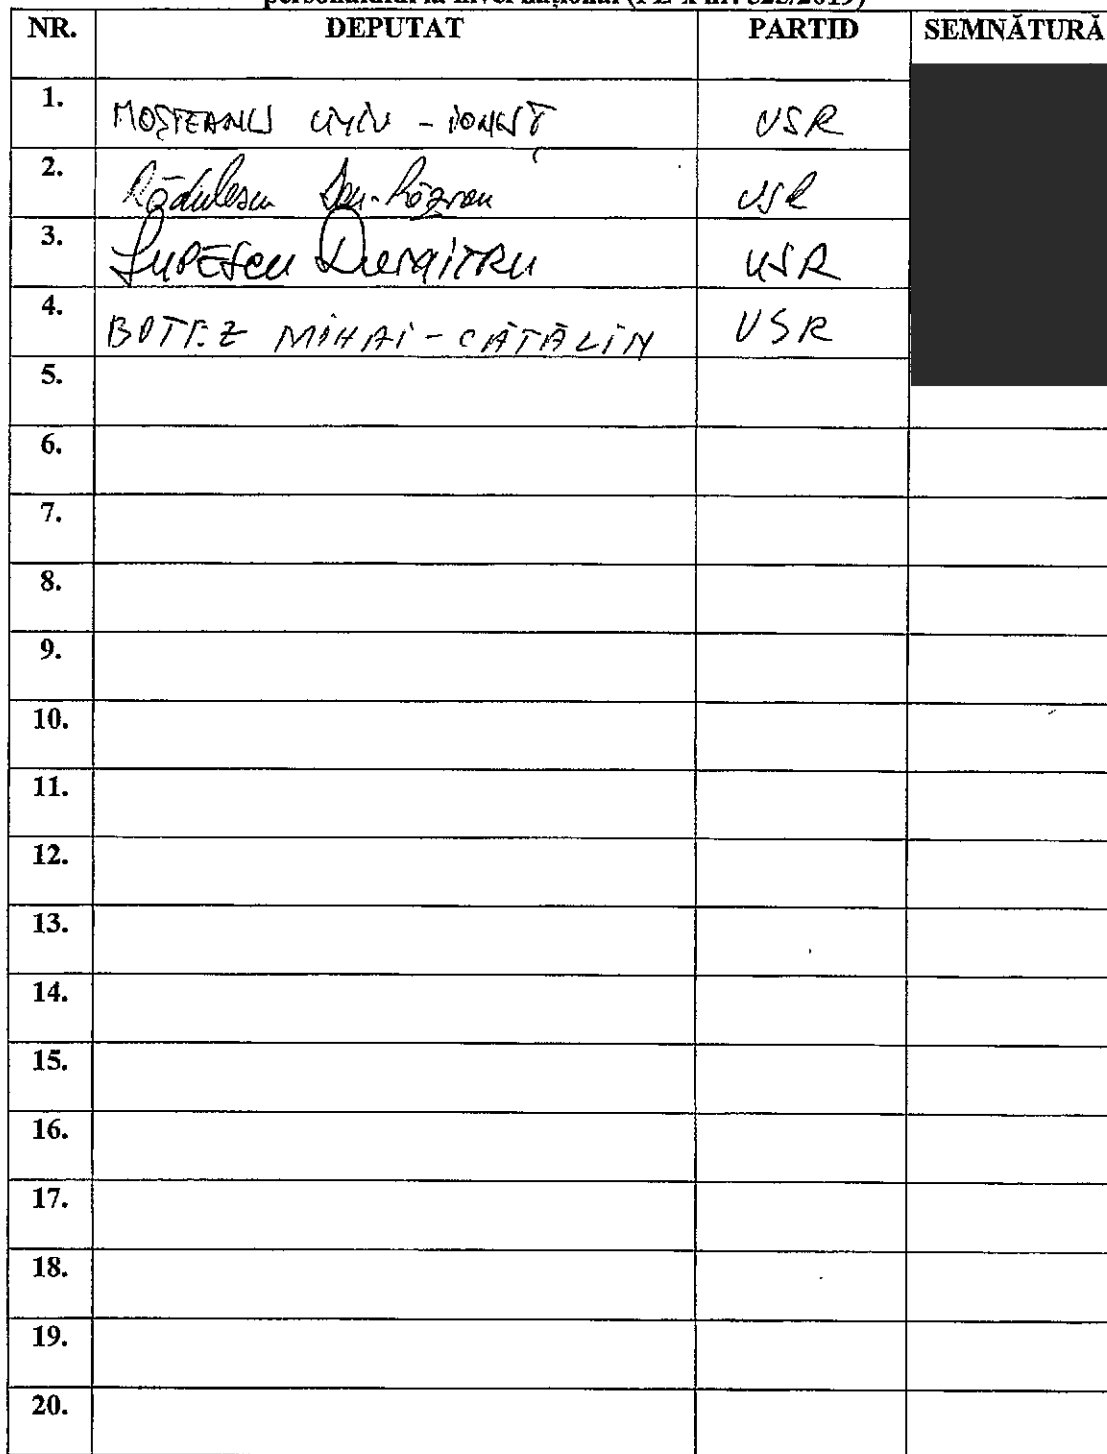 NR. DEPUTAT PARTID SEMNĂTURĂ
1. MOȘTEANU LIVIU-IONUȚ USR
2. Rădulescu Dan-Răzvan USR
3. LUPESCU DUMITRU USR
4. BOTEZ MIHAI-CĂTĂLIN USR
5.
6.
7.
8.
9.
10.
11.
12.
13.
14.
15.
16.
17.
18.
19.
20.